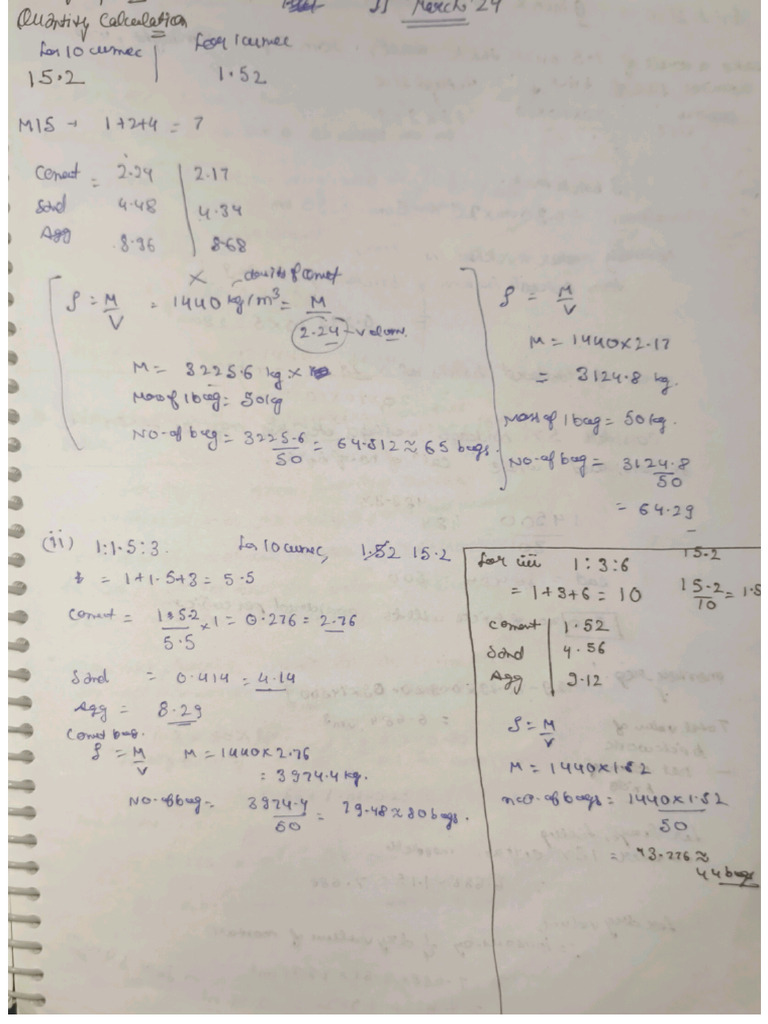 11 March '24
Quantity Calculation
for 10 cumec | for 1 cumec
15.2 | 1.52
M15 → 1+2+4 = 7
Cement = 2.24 | 2.17
Sand 4.48 | 4.34
Agg 8.96 | 8.68
X density of cement
ρ = M/V = 1440 kg/m³ = M/2.24 - volum.
M = 3225.6 kg x
Mass of 1 bag = 50kg
No. of bag = 3225.6/50 = 64.512 ≈ 65 bags.
ρ = M/V
M = 1440x2.17
= 3124.8 kg.
Mass of 1 bag = 50kg.
No. of bag = 3124.8/50
= 64.29
(ii) 1:1.5:3. for 10 cumec, 1.52 15.2
= 1+1.5+3 = 5.5
Cement = 15.2/5.5 x1 = 0.276 = 2.76
Sand = 0.414 = 4.14
Agg = 8.29
Cement bag.
ρ = M/V M = 1440x2.76
= 3974.4 kg.
No. of bag = 3974.4/50 = 79.48 ≈ 80 bags.
for iii 1:3:6 15.2
= 1+3+6 = 10 15.2/10 = 1.5
cement | 1.52
Sand | 4.56
Agg | 9.12
ρ = M/V
M = 1440x1.52
no. of bags = 1440x1.52/50
= 43.776 ≈
44 bags